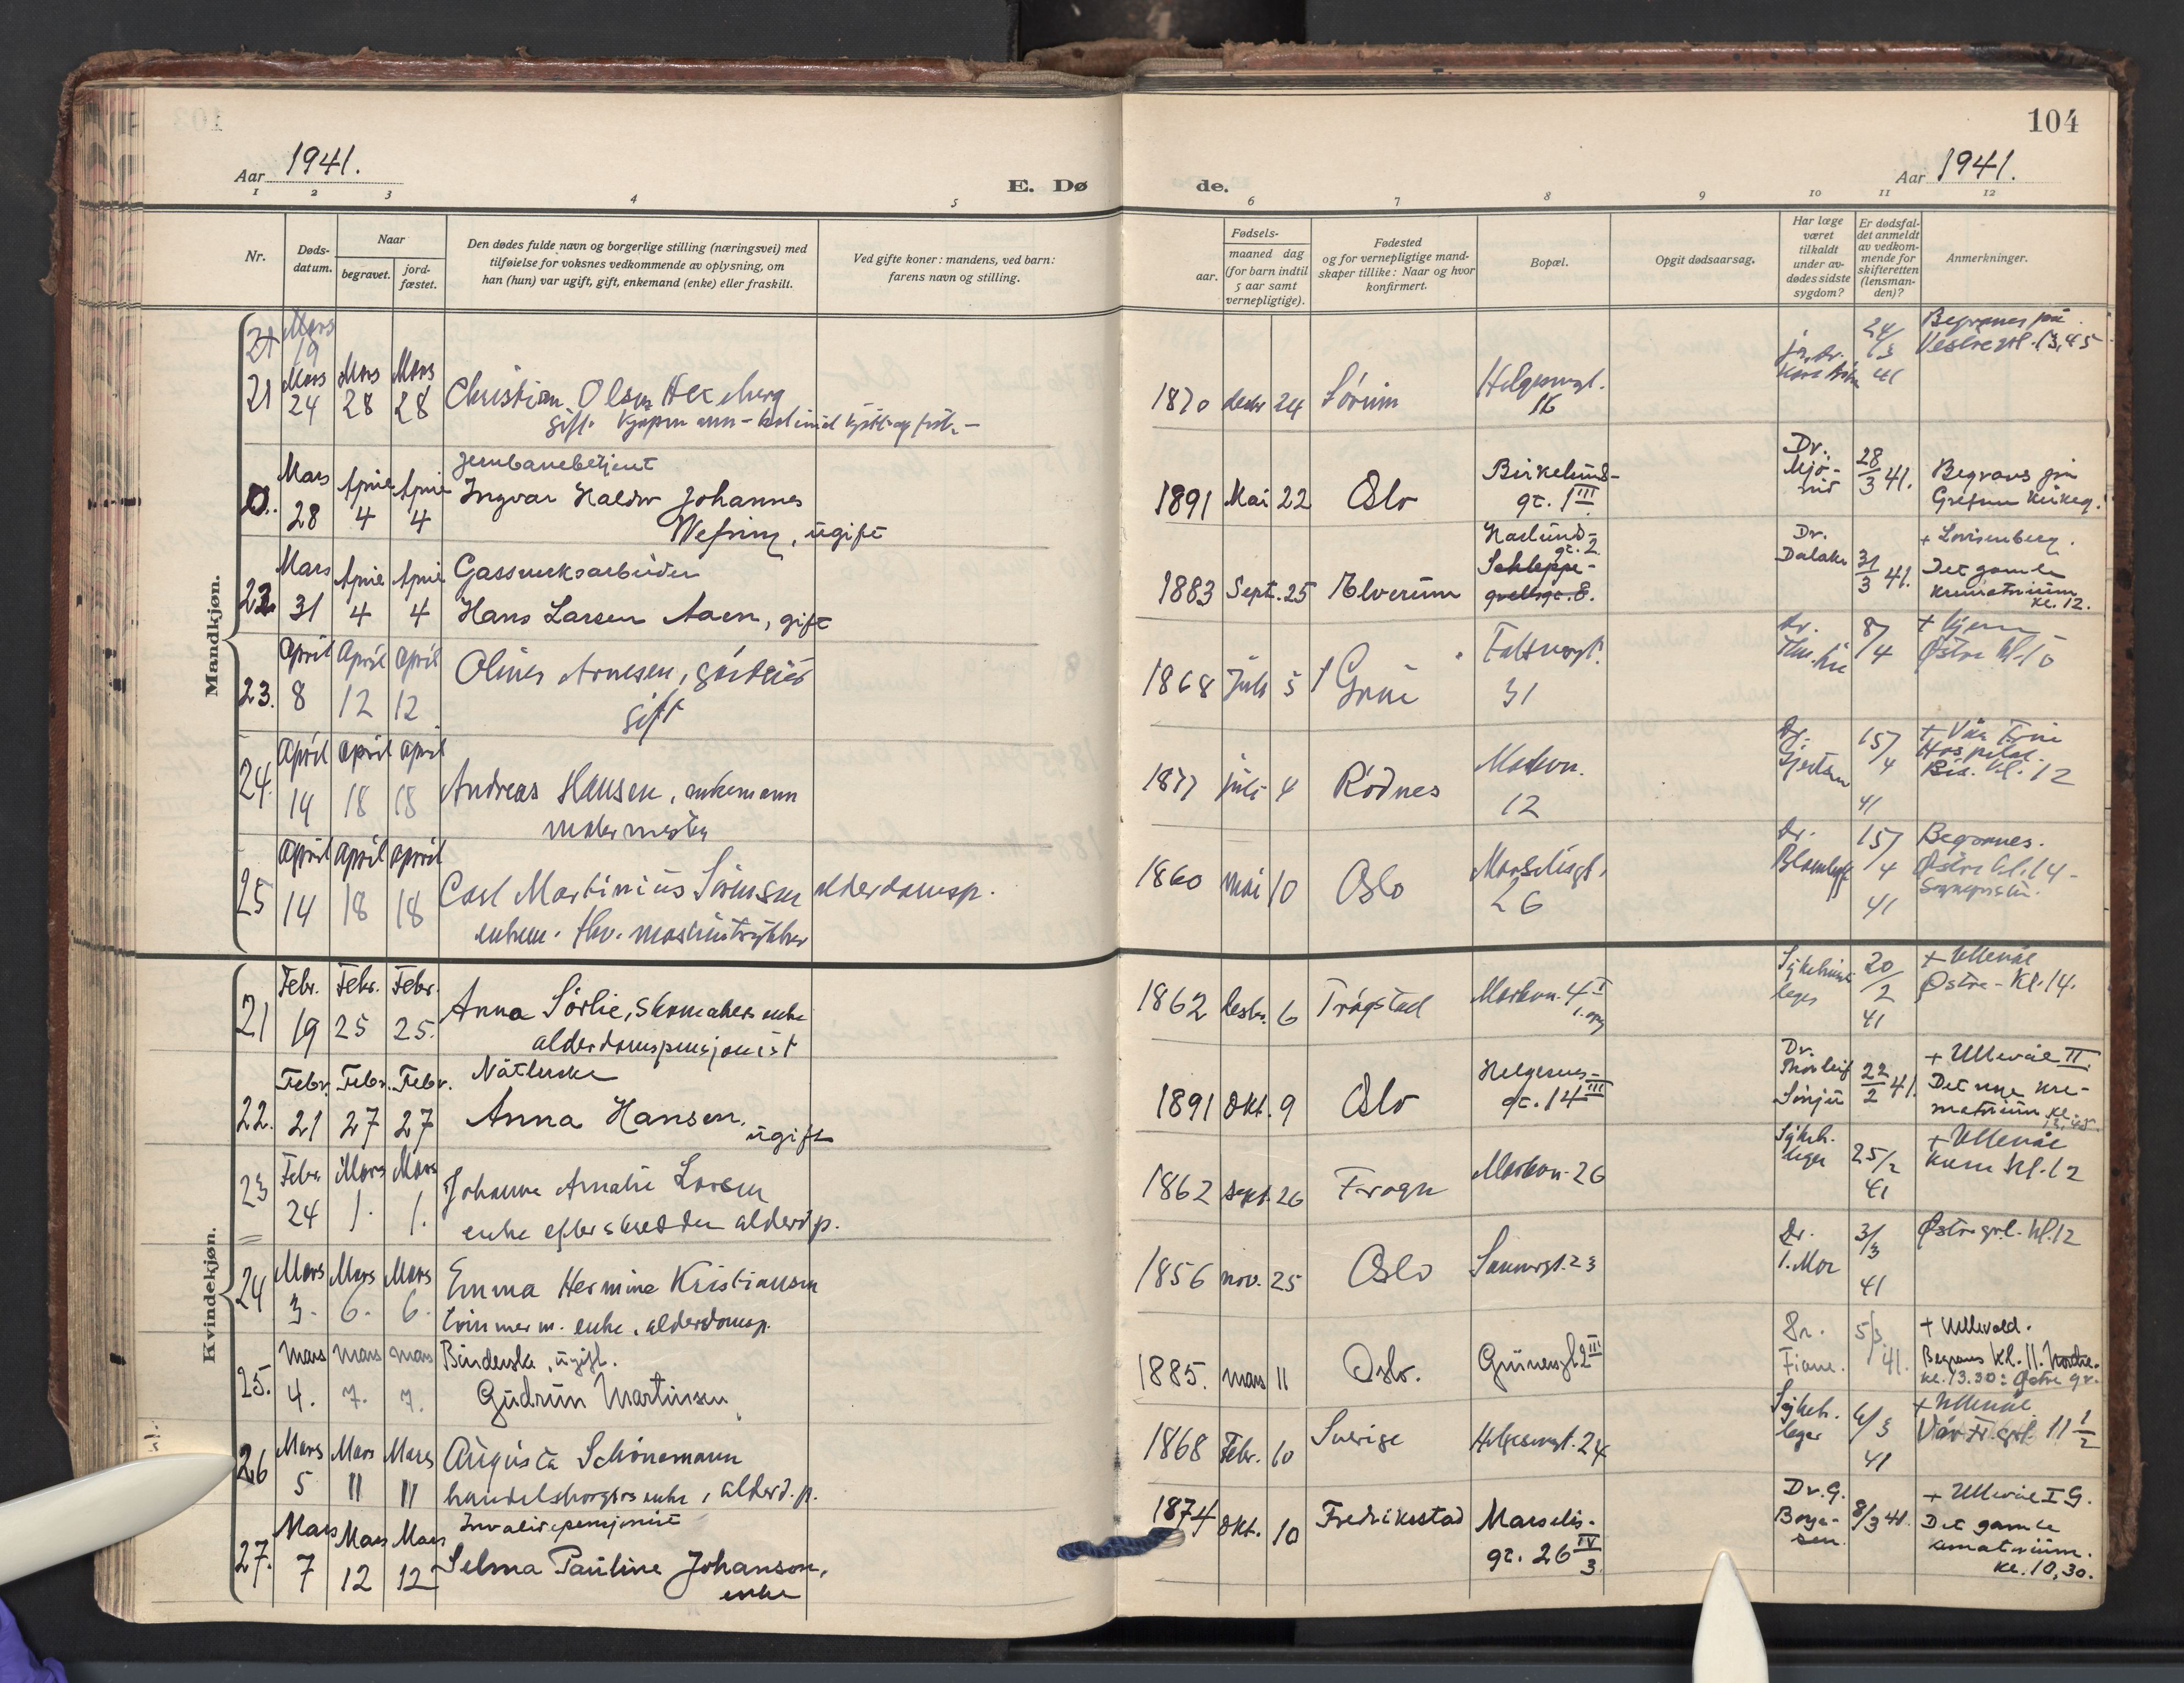 104
Aar 1941.
E. Dø de.
Aar 1941.
1 2 3 4 5 6 7 8 9 10 11 12
Nr.
Døds-
datum.
Naar
begravet.
jord-
fæstet.
Den dødes fulde navn og borgerlige stilling (næringsvei) med
tilføielse for voksnes vedkommende av oplysning, om
han (hun) var ugift, gift, enkemand (enke) eller fraskilt.
Ved gifte koner: mandens, ved barn:
farens navn og stilling.
aar.
Fødsels-
maaned dag
(for barn indtil
5 aar samt
vernepligtige).
Fødested
og for vernepligtige mand-
skaper tillike: Naar og hvor
konfirmert.
Bopæl.
Opgit dødsaarsag.
Har læge
været
tilkaldt
under av-
dødes sidste
sygdom?
Er dødsfal-
det anmeldt
av vedkom-
mende for
skifteretten
(lensman-
den)?
Anmerkninger.
Mandkjøn.
Mars
19
21 Mars 24 Mars 28 Mars 28
Christian Olsen
gift.
1870 decbr 24 Sørum
16
24/3 41
Begraves på
Vestre grl. 13,45
Mars 28 April 4 April 4
Jernbanebetjent
Ingvar Haldor Johannes
Wefring, ugift
1891 Mai 22 Oslo
Birkelund-
gt. 1 III
Dr.
28/3 41.
Begraves på
Grefsen kirkeg.
22. Mars 31 April 4 April 4
Gassverksarbeider
Hans Larsen Aaen, gift
1883 Sept. 25 Elverum
gt. 2
Schleppe-
grellsgt. 8.
Dr.
31/3 41.
+ Lovisenberg.
Det gamle
krematorium
kl. 12.
23. April 8 April 12 April 12
Arnesen,
gift
1868 Juli 5 Grue
31
Dr.
8/4
Østre kl. 10
24. April 14 April 18 April 18
Andreas Hansen, enkemann
malermester
1877 juli 4 Rødnes
Markvn.
12
Dr.
15/4 41
+ Vår Frue
Hospital.
kl. 12
25 April 14 April 18 April 18
Carl Martinius Sørensen alderdomsp.
enkem. fhv. maskintrykker
1860 mai 10 Oslo
Marselisgt.
26
Dr.
15/4 41
Begraves.
Østre kl. 14 -
Kvindekjøn.
21 Febr. 19 Febr. 25 Febr. 25.
Anna Sørlie, skomakers enke
alderdomspensjonist
1862 desbr. 6 Trøgstad
Markvn. 4 I
Sykehus
leger
20/2 41
+ Ullevål
Østre - Kl. 14.
22. Febr. 21 Febr. 27 Febr. 27
Nåtlerske
Anna Hansen,
ugift
1891 Okt. 9 Oslo
Helgesens-
gt. 14 III
Dr.
Thorleif
22/2 41.
+ Ullevål II
Det nye kre-
matorium kl.
13,45.
23 Febr. 24 Mars 1. Mars 1.
Johanne Amalie Larsen
enke efter skredder alderd.p.
1862 sept. 26 Frogn
Markvn. 26
Sykeh.
leger
25/2 41
+ Ullevål
Krem kl. 12
24 Mars 3. Mars 6. Mars 6.
Emma Hermine Kristiansen
tømmerm. enke, alderdomsp.
1856 nov. 25 Oslo
23
Dr.
3/3 41
Østre grl. kl. 12
25. Mars 4. Mars 7. Mars 7.
Binderske, ugift.
Gudrun Martinsen
1885. Mars 11 Oslo.
Grünersgt. 2 III
Dr.
5/3 41.
+ Ullevold.
Begraves kl. 11. Nordre.
kl. 13.30: Østre gr.
26 Mars 5 Mars 11 Mars 11
Augusta Schönemann
handelsborgers enke, alderd.p.
1868 Febr. 10 Sverige
Helgesensgt. 24
Sykeh.
leger
6/3 41
+ Ullevål
Vår Fr. grl. 11 1/2
27. Mars 7 Mars 12 Mars 12
Invalidepensjonist
Selma Pauline Johanson,
enke
1874 Okt. 10 Fredrikstad
Marselis-
gt. 26 IV
3
Dr. G.
Borge-
sen.
8/3 41.
+ Ullevål I G.
Det gamle
krematorium.
kl. 10,30.